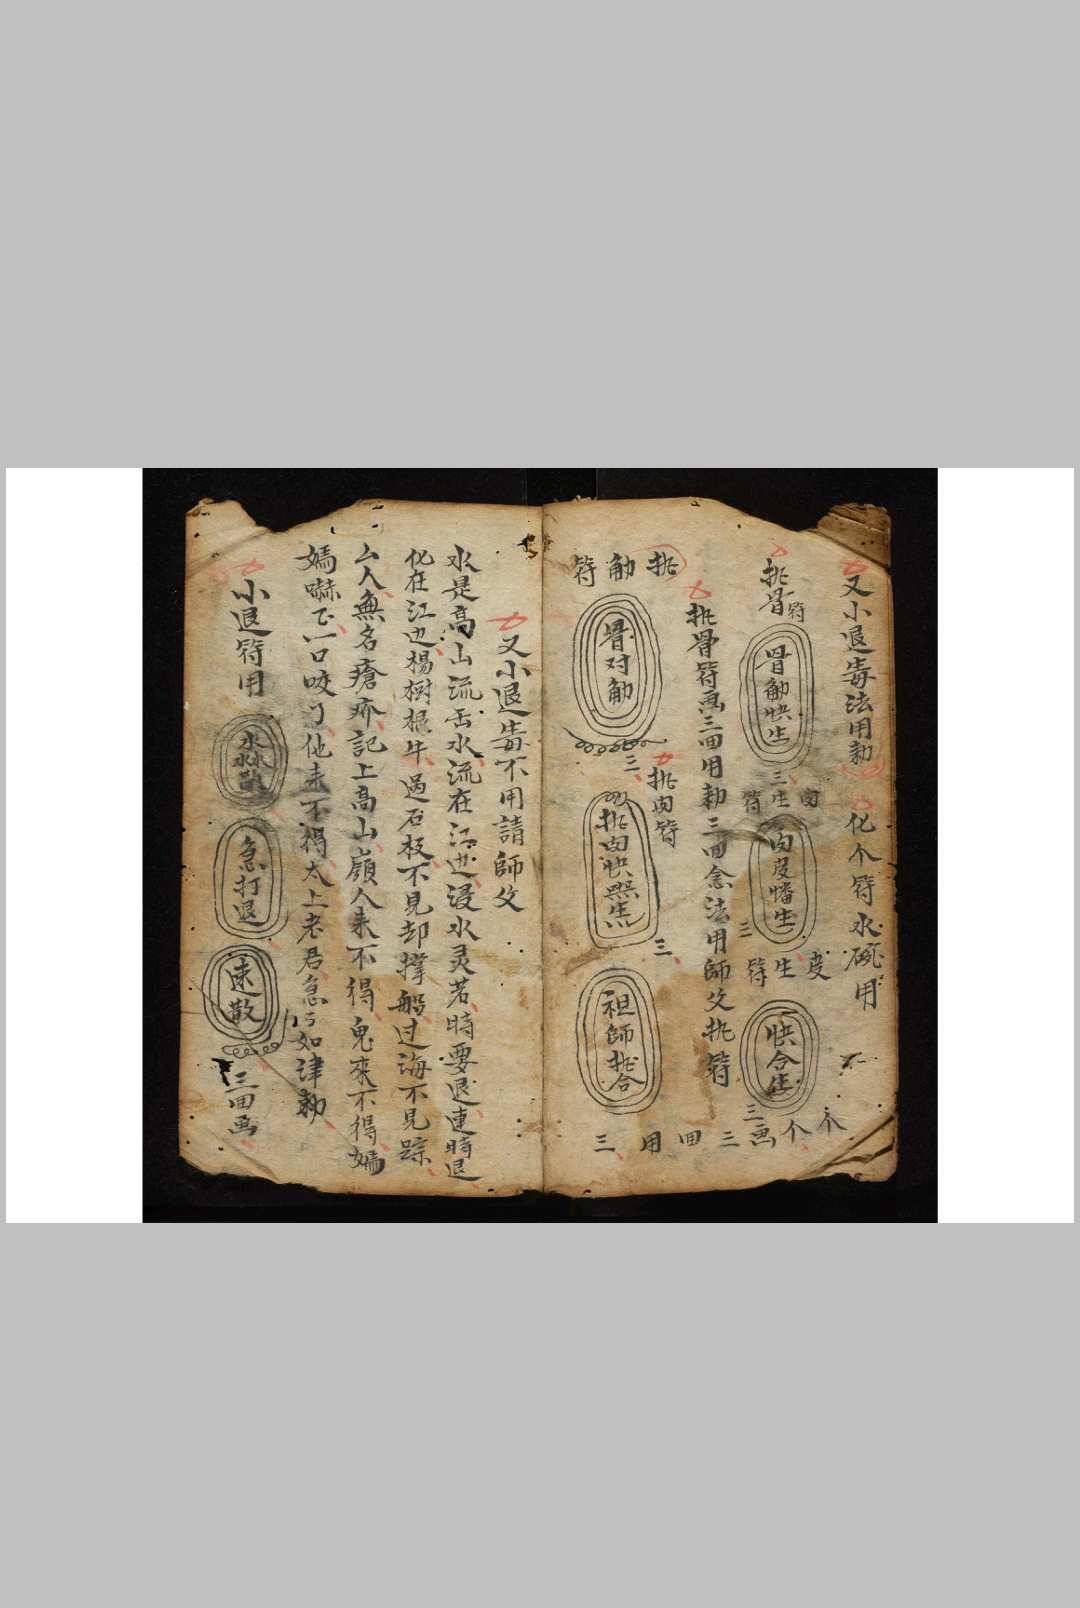 又小退毒法用勅
化个符水碗用
挑骨符
骨勧快生
三
肉生符
肉皮幡生
三
皮生符
快合生
三
个个画三回用
挑骨符画三回用勅三回念法用師父挑符
挑勧符
骨对勧
三
挑肉符
挑肉快
三
祖師挑合
三
又小退毒不用請師父
水是高山流岳水流在江边浸水灵若時要退連時退
化在江边楊樹根牛過石板不見却撑船过海不見踪
厶人無名瘡疥記上高山嶺人来不得鬼來不得嫣
嫣嚇下一口咬了他来不得太上老君急如律勅
小退符用
水水水散
急打退
速散
三回画